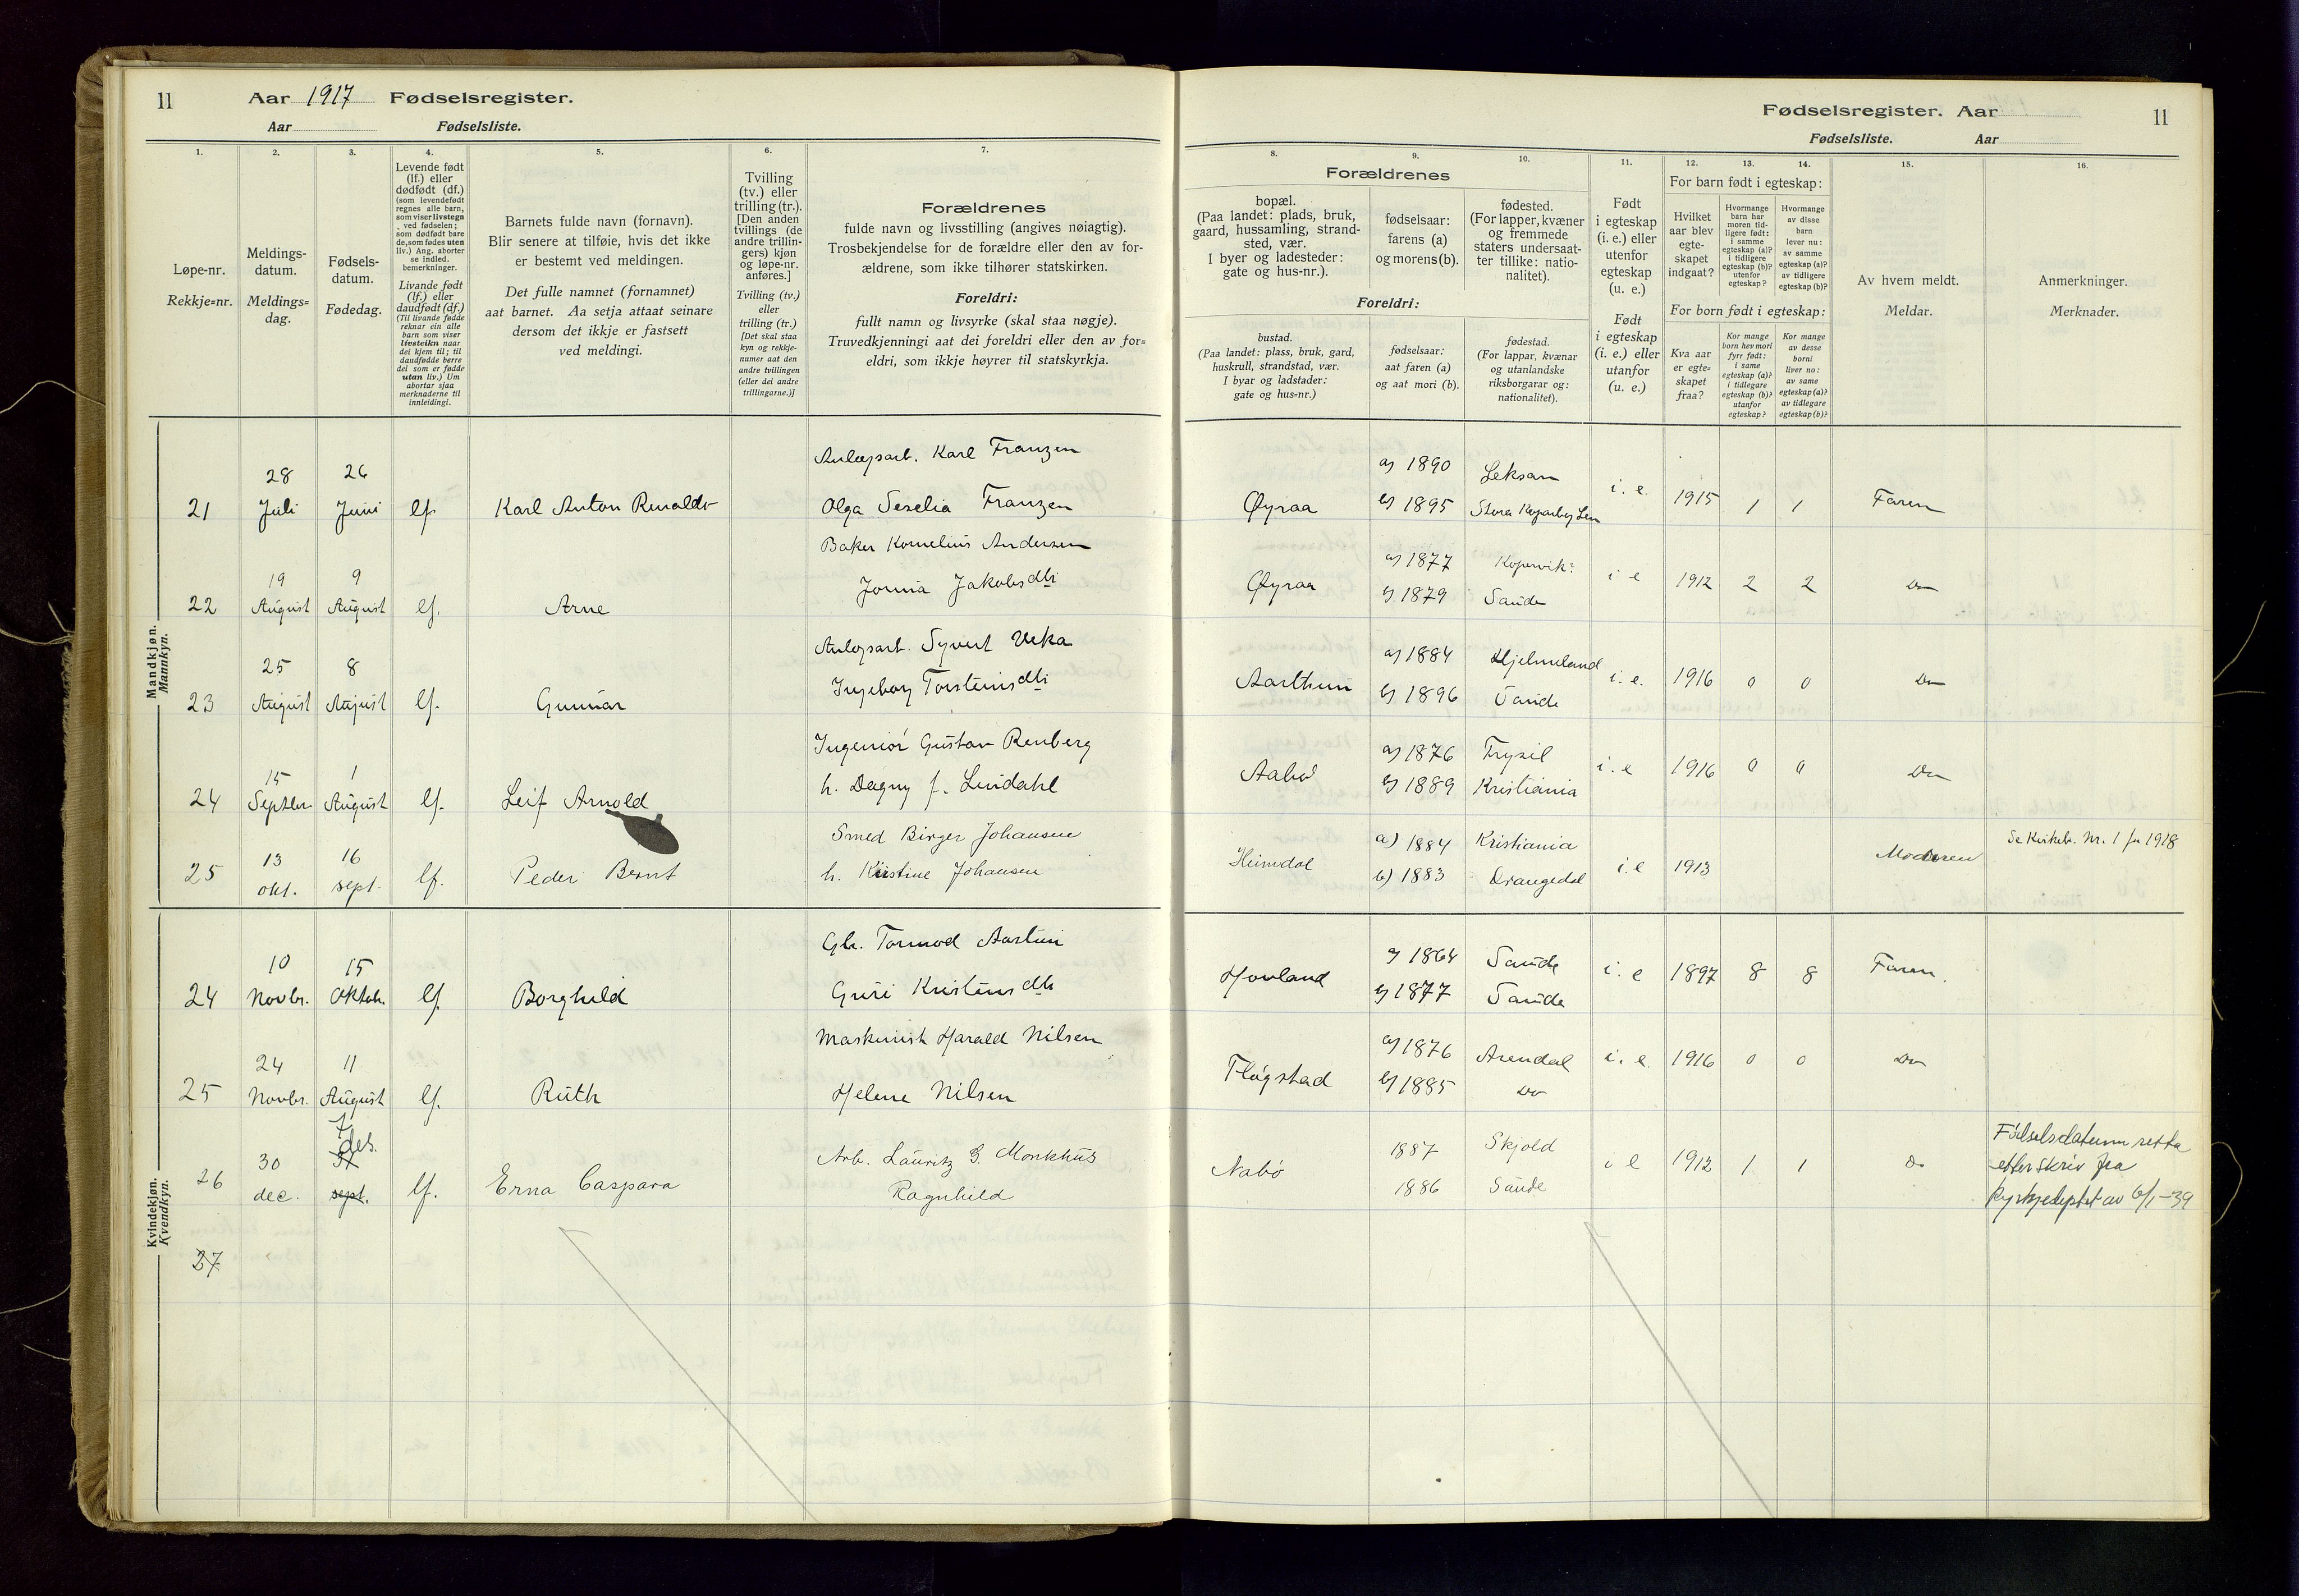 11 Aar 1917 Fødselsregister.
Aar Fødselsliste.
1. 2. 3. 4. 5. 6. 7.
Løpe-nr.
Rekkje=nr.
Meldings-
datum.
Meldings=
dag.
Fødsels-
datum.
Fødedag.
Levende født
(lf.) eller
dødfødt (df.)
(som levendefødt
regnes alle barn,
som viser livstegn
ved fødselen;
som dødfødt bare
de, som fødes uten
liv.) Ang. aborter
se indled.
bemerkninger.
Livande født
(lf.) eller
daudfødt (df.)
(Til livande fødde
reknar ein alle
barn som viser
livsteikn naar
dei kjem til; til
daudfødde berre
dei som er fødde
utan liv.) Um
abortar sjaa
merknaderne til
innleidingi.
Barnets fulde navn (fornavn).
Blir senere at tilføie, hvis det ikke
er bestemt ved meldingen.
Det fulle namnet (fornamnet)
aat barnet. Aa setja attaat seinare
dersom det ikkje er fastsett
ved meldingi.
Tvilling
(tv.) eller
trilling (tr.).
[Den anden
tvillings (de
andre trillin-
gers) kjøn
og løpe-nr.
anføres.]
Tvilling (tv.)
eller
trilling (tr.)
[Det skal staa
kyn og rekkje-
numer aat den
andre tvillingen
(eller dei andre
trillingarne.)]
Forældrenes
fulde navn og livsstilling (angives nøiagtig).
Trosbekjendelse for de forældre eller den av for-
ældrene, som ikke tilhører statskirken.
Foreldri:
fullt namn og livsyrke (skal staa nøgje).
Truvedkjenningi aat dei foreldri eller den av for=
eldri, som ikkje høyrer til statskyrkja.
Mandkjøn.
Mannkyn.
28 26
Anlegsarb. Karl Franzen
21 Juli Juni lf. Karl Anton Renaldo Olga Seselia Franzen
Baker Kornelius Andersen
19 9
22 August August lf. Arne Jonna Jakobsdtr
Anlegsarb. Syvert Veka
25 8
23 August August lf. Gunnar Ingeborg Torsteinsdtr
Ingeniør Gustav Renberg
15 1
24 Septbr August lf. Leif Arnold h. Dagny f. Lindahl
Smed Birger Johansen
13 16
25 okt. sept. lf. Peder Bernt h. Kristine Johansen
Kvindekjøn.
Kvendkyn.
Gbr. Tormod Aartun
10 15
24 Novbr. Oktob. lf. Borghild Guri Kristensdtr
Maskinist Harald Nilsen
24 11
25 Novbr. August lf. Ruth Helene Nilsen
7
des.
30 31
Arb. Lauritz G. Monkhus
26 dec. sept. lf. Erna Caspara Ragnhild
27
Fødselsregister. Aar 11
Fødselsliste. Aar
8. 9. 10. 11. 12. 13. 14. 15. 16.
Forældrenes
bopæl.
(Paa landet: plads, bruk,
gaard, hussamling, strand-
sted, vær.
I byer og ladesteder:
gate og hus-nr.).
fødselsaar:
farens (a)
og morens (b).
fødested.
(For lapper, kvæner
og fremmede
staters undersaat-
ter tillike: natio-
nalitet).
Foreldri:
bustad.
(Paa landet: plass, bruk, gard,
huskrull, strandstad, vær.
I byar og ladstader:
gate og hus=nr.)
fødselsaar:
aat faren (a)
og aat mori (b).
fødestad.
(For lappar, kvænar
og utanlandske
riksborgarar og:
nationalitet).
Født
i egteskap
(i. e.) eller
utenfor
egteskap
(u. e.)
Født
i egteskap
(i. e.) eller
utanfor
(u. e.)
For barn født i egteskap:
Hvilket
aar blev
egte-
skapet
indgaat?
Hvormange
barn har
moren tid-
ligere født:
i samme
egteskap (a)?
i tidligere
egteskap (b)?
utenfor
egteskap?
Hvormange
av disse
barn
lever nu:
av samme
egteskap (a)?
av tidligere
egteskap (b)?
For born født i egteskap:
Kva aar
er egte=
skapet
fraa?
Kor mange
born hev mori
fyrr født:
i same
egteskap (a)?
i tidlegare
egteskap (b)?
utanfor
egteskap?
Kor mange
av desse
borni
liver no:
av same
egteskap (a)?
av tidlegare
egteskap (b)?
Av hvem meldt.
Meldar.
Anmerkninger.
Merknader.
a) 1890 Leksan
Øyraa b) 1895 Stora Koparberg Len i. e. 1915 1 1 Faren
a) 1877 Kopervik
Øyraa b) 1879 Sande i e 1912 2 2 Do
a) 1884 Hjelmeland
Aarthun b) 1896 Sande i. e. 1916 0 0 Do
a) 1876 Trysil
Aabø b) 1889 Kristiania i. e 1916 0 0 Do
a) 1884 Kristiania
Heimdal b) 1883 Drangedal i. e 1913 Moderen Se Kirkeb. Nr. 1 for 1918
a) 1864 Sande
Hovland b) 1877 Sande i. e 1897 8 8 Faren.
a) 1876 Arendal
Fløgstad b) 1885 Do i. e. 1916 0 0 Do
1887 Skjold
Nabø 1886 Sande i e 1912 1 1 Do
Fødselsdatum retta
etter skriv fra
Kyrkjedeptet av 6/1-39